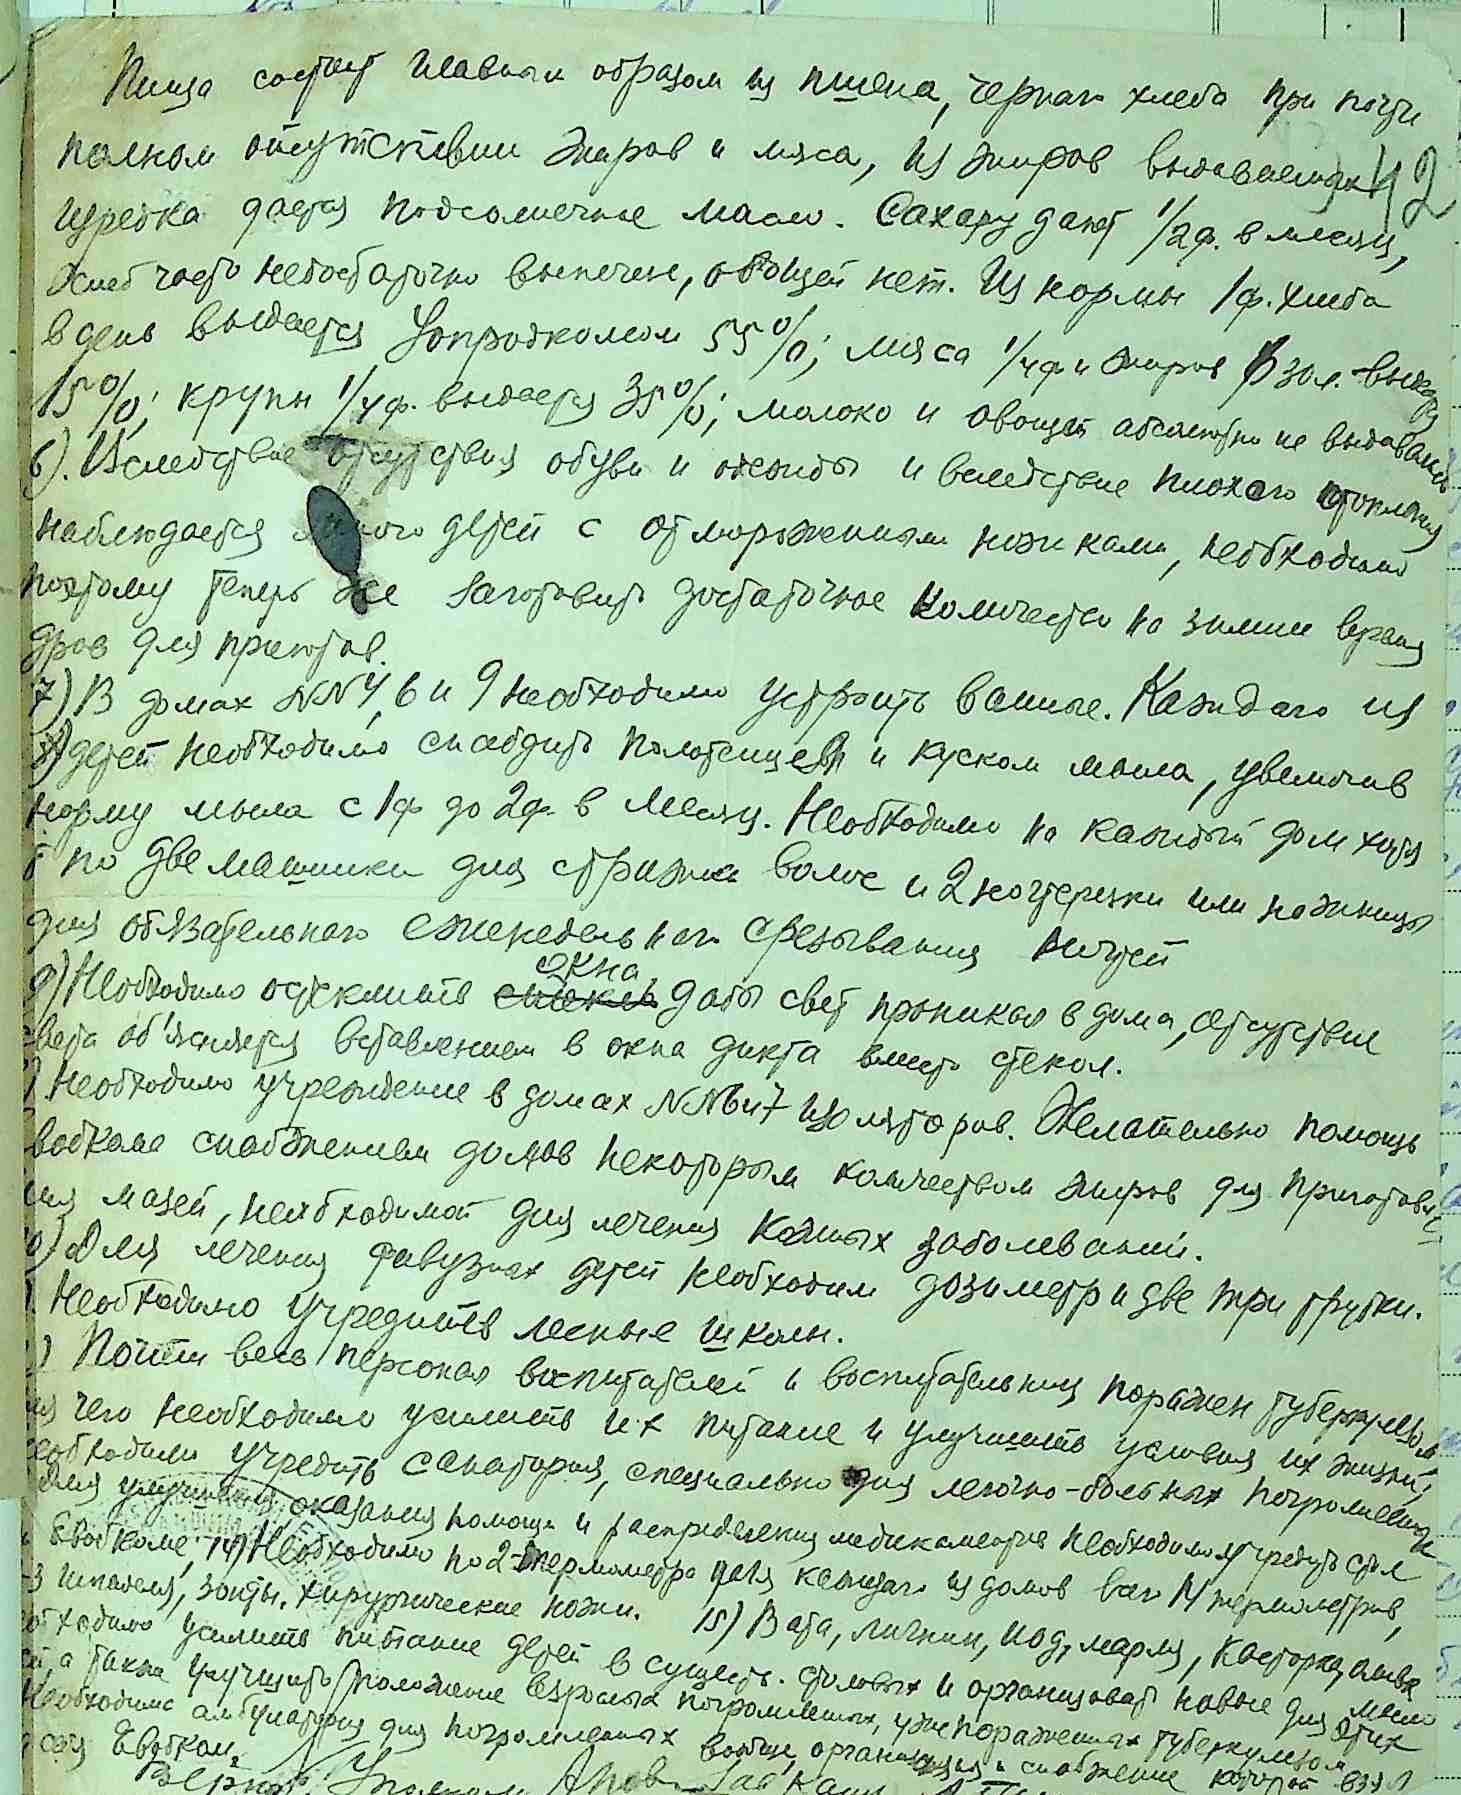 Пища состоит главным образом из пшена, чернаго хлеба при почти
42
полном отсутствии жиров и мяса, из жиров
изредка дается подсолнечное масло. Сахару дают 1/2ф. в месяц,
Хлеб часто недостаточно выпечен, овощей нет. Из нормы 1ф. хлеба
в день выдается Упродкомом 55%; мяса 1/4ф и жиров 3 зол.
15%; крупы 1/4ф. выдается 35%; молоко и овощей абсолютно не выдавалось
6). Вследствие отсутствия обуви и одежды и вследствие плохого отопления
наблюдается много детей с отмороженными ножками, необходимо
поэтому теперь же заготовить достаточное количество на зимнее время
дров для приютов.
7) В домах NN 4, 6 и 9 необходимо устроить ванные. Каждаго из
8) детей необходимо снабдить полотенцем и куском мыла, увеличив
норму мыла с 1ф до 2ф. в месяц. Необходимо на каждый дом хотя
б по две машинки для стрижки волос и 2 ногтерезки или ножницы
для обязательнаго еженедельнаго срезывания ногтей
окна
9) Необходимо остеклить стекль дабы свет проникал в дома, отсутствие
света об'ясняется вставлением в окна дикта вместо стекол.
Необходимо учреждение в домах NN 6 и 7 изоляторов. Желательно помощь
снабжением домов некоторым количеством жиров для приготовле
ния мазей, необходимой для лечения кожных заболеваний.
10) Для лечения фавузных детей необходим дозиметр и две три трубки.
Необходимо учредить лесные школы.
Почти весь персонал воспитателей и воспитательниц поражен туберкулезом
для чего необходимо усилить их питание и улучшить условия их жизни,
необходимо учредить санатория, специально для легочно-больных погромленных
Для улучшения оказания помощи и распределения медикаментов необходимо учредить стол
Евобкоме, 14) Необходимо по 2 термометра для каждаго из домов всего 14 термометров,
шпателя, зонты, хирургические ножи. 15) Вата, лигнин, иод, марля, касторка,
необходимо усилить питание детей в существ. столовых и организовать новые для
а также улучшить положение взрослых погромленных, уже пораженных туберкулезом
Необходима амбулатория для погромленных вообще, организация и снабжение которой взял
на себя Евобком.
Верно: